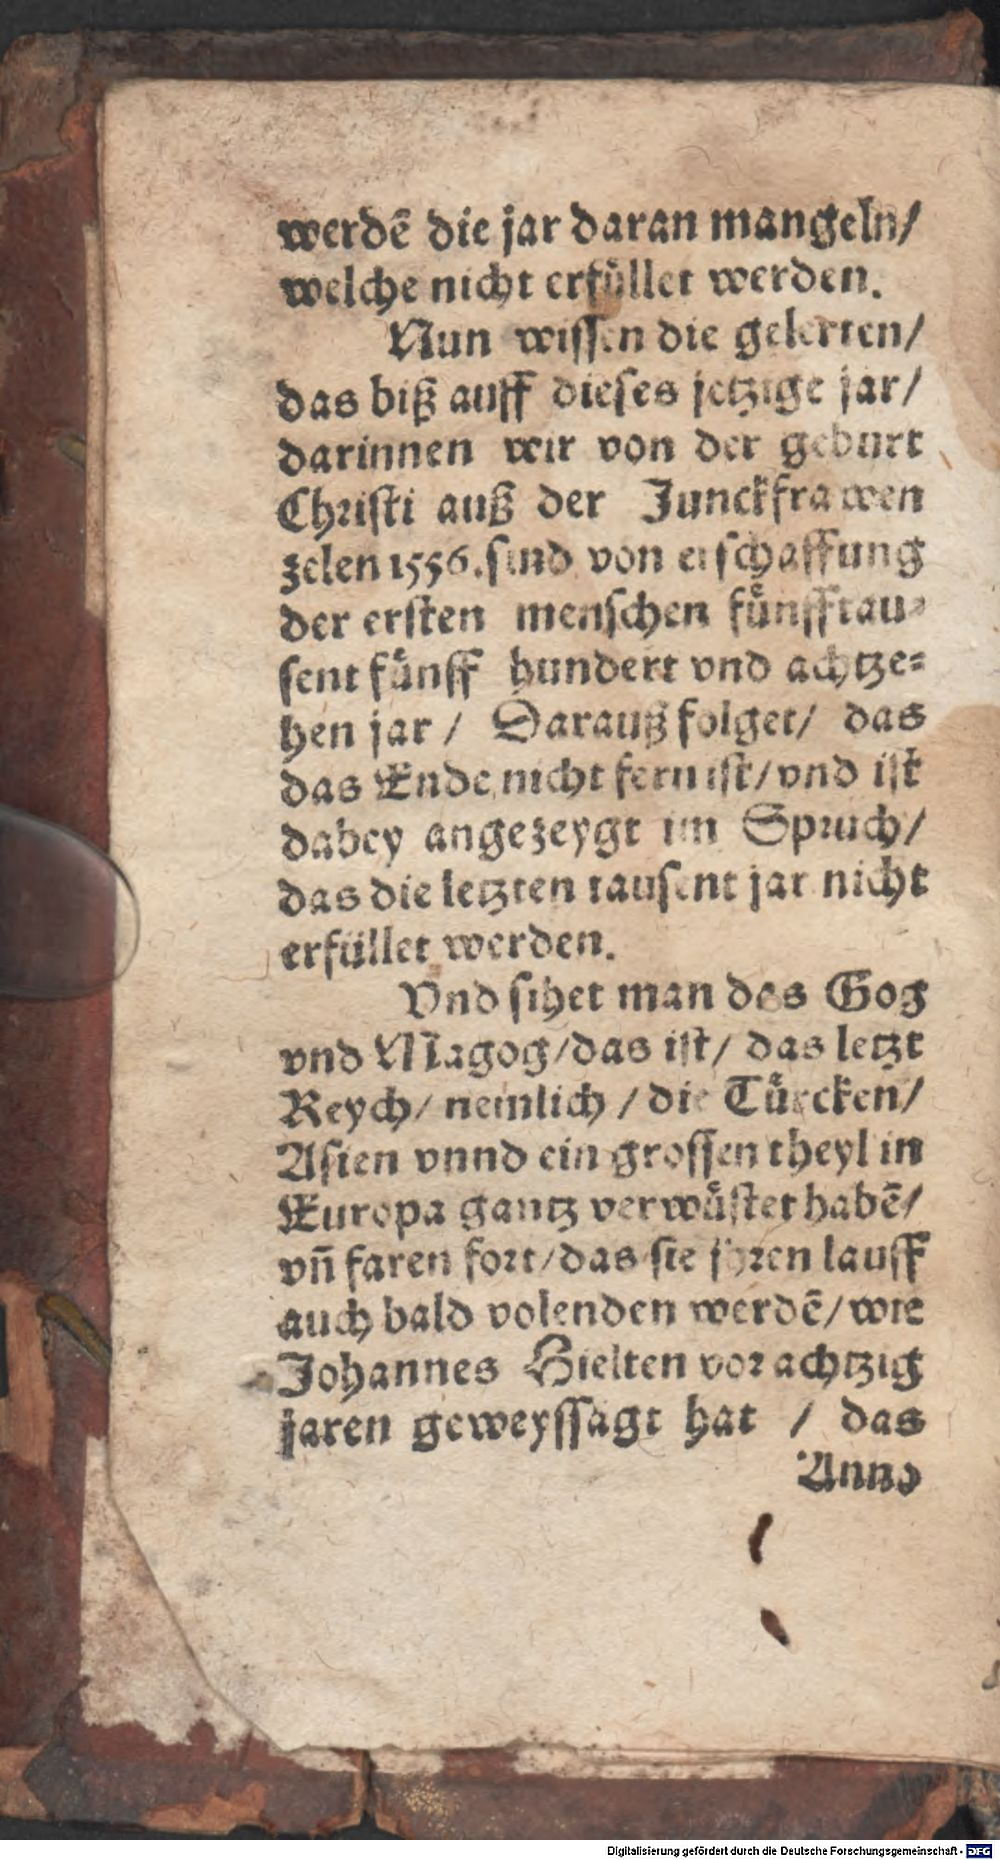 werdẽ die jar daran mangeln/
welche nicht erfüllet werden.
Nun wissen die gelerten/
das biß auff dieses jetzige jar/
darinnen wir von der geburt
Christi auß der Junckfrawen
zelen 1556. sind von erschaffung
der ersten menschen fünfftau-
sent fünff hundert vnd achtze-
hen jar / Darauß folget/ das
das Ende nicht fern ist/vnd ist
dabey angezeygt im Spruch/
das die letzten tausent jar nicht
erfüllet werden.
Vnd sihet man das Gog
vnd Magog/das ist/ das letzt
Reych/ nemlich / die Türcken/
Asien vnnd ein grossen theyl in
Europa gantz verwüstet habẽ/
vñ faren fort/das sie jhren lauff
auch bald volenden werdẽ/wie
Johannes Hielten vor achtzig
jaren geweyssagt hat / das
Anno
Digitalisierung gefördert durch die Deutsche Forschungsgemeinschaft - DFG